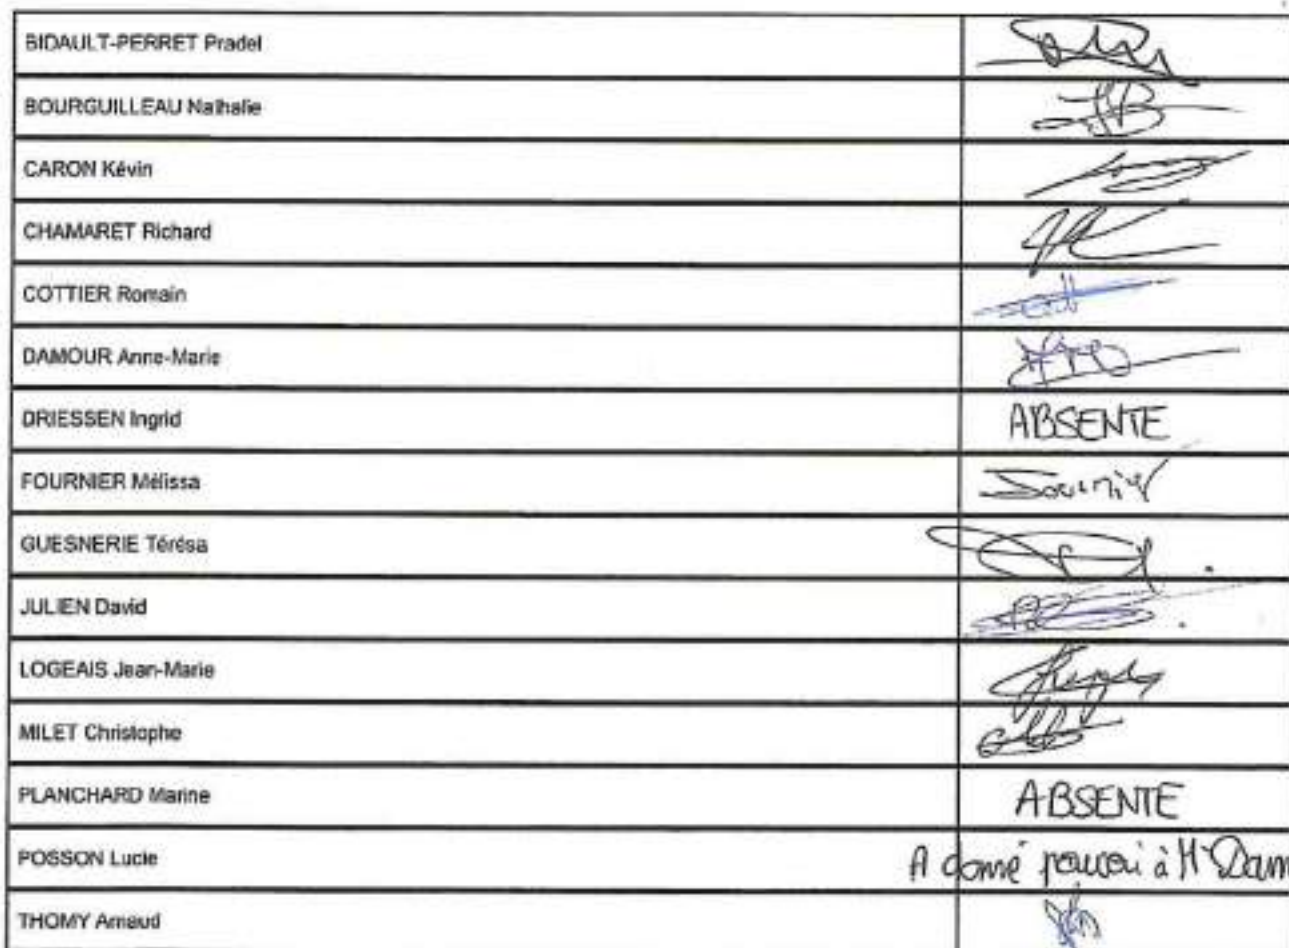 BIDAULT-PERRET Pradel
BOURGUILLEAU Nathalie
CARON Kévin
CHAMARET Richard
COTTIER Romain
DAMOUR Anne-Marie
DRIESSEN Ingrid ABSENTE
FOURNIER Mélissa
GUESNERIE Térésa
JULIEN David
LOGEAIS Jean-Marie
MILET Christophe
PLANCHARD Marine ABSENTE
POSSON Lucie A donné pouvoi à Dam
THOMY Arnaud